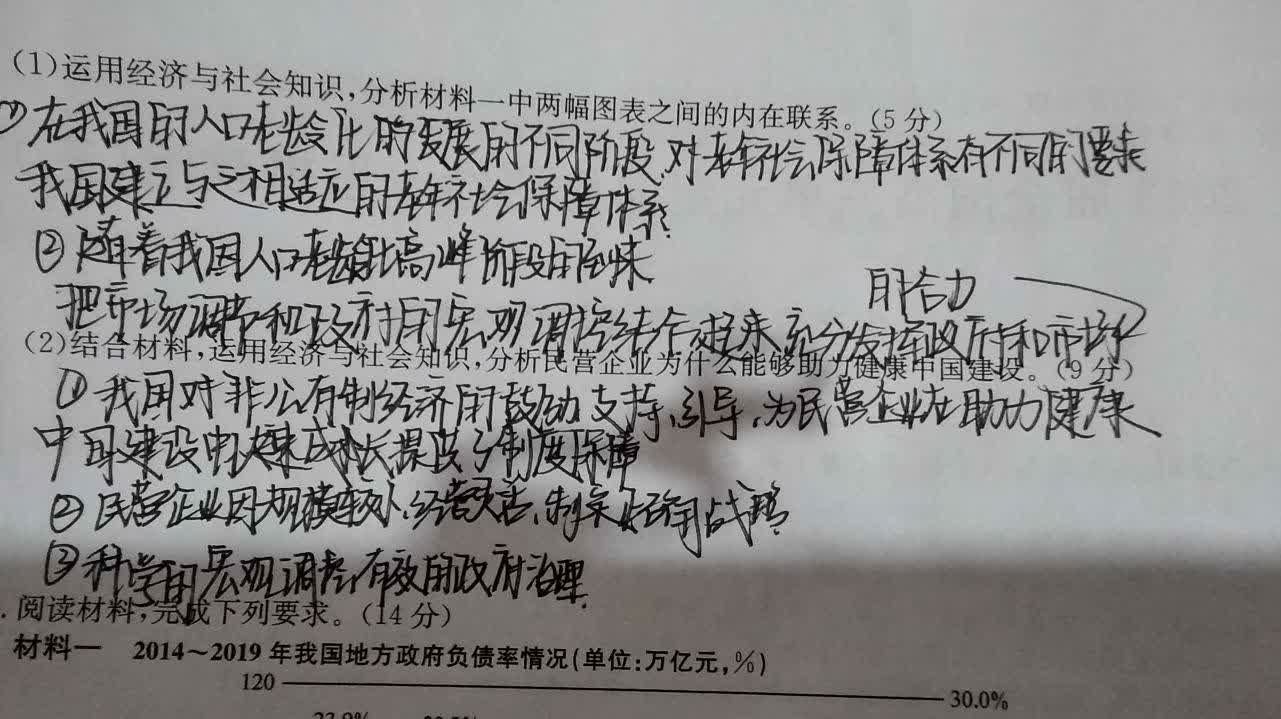 (1)运用经济与社会知识,分析材料一中两幅图表之间的内在联系。(5分)
①在我国的人口老龄化的发展的不同阶段,对老年社会保障体系有不同的要求
我国建立与之相适应的老年社会保障体系.
②随着我国人口老龄化高峰阶段的到来
的合力
把市场调节和政府的宏观调控结合起来 充分发挥政府和市场
(2)结合材料,运用经济与社会知识,分析民营企业为什么能够助力健康中国建设。(9分)
①我国对非公有制经济的鼓励、支持、引导,为民营企业在助力健康
中国建设中快速成长提供了制度保障
②民营企业因规模较小、经营灵活、制定经营战略
③科学的宏观调控,有效的政府治理.
.阅读材料,完成下列要求。(14分)
材料一 2014~2019年我国地方政府负债率情况(单位:万亿元,%)
120
30.0%